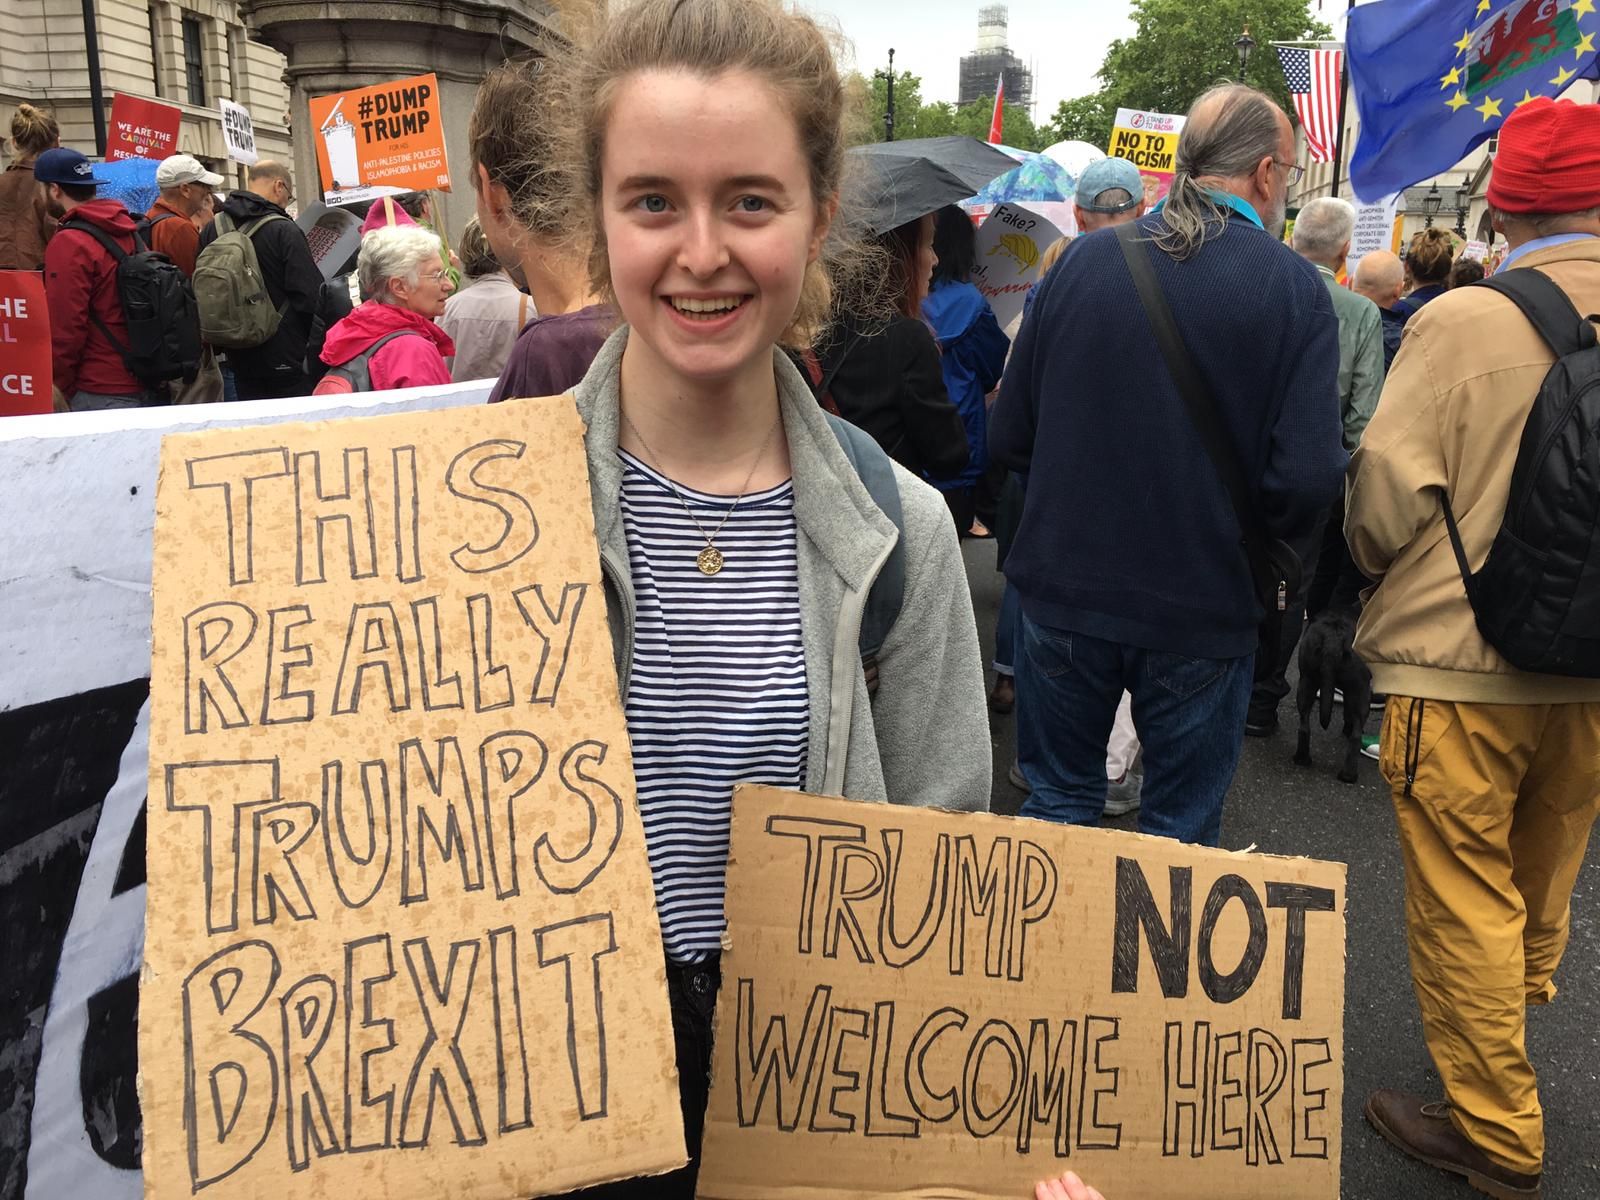 WE ARE THE
CARNIVAL
OF
#DUMP
TRUMP
#DUMP
TRUMP
FOR HIS
ANTI-PALESTINE POLICIES
ISLAMOPHOBIA & RACISM
FOA
STAND UP
TO RACISM
NO TO
RACISM
Fake?
HE
L
CE
THIS
REALLY
TRUMPS
BREXIT
TRUMP NOT
WELCOME HERE